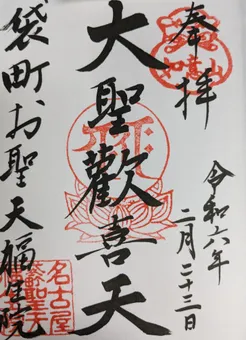 奉拝
令和六年
二月二十三日
大聖歡喜天
袋町お聖天福生院
名古屋